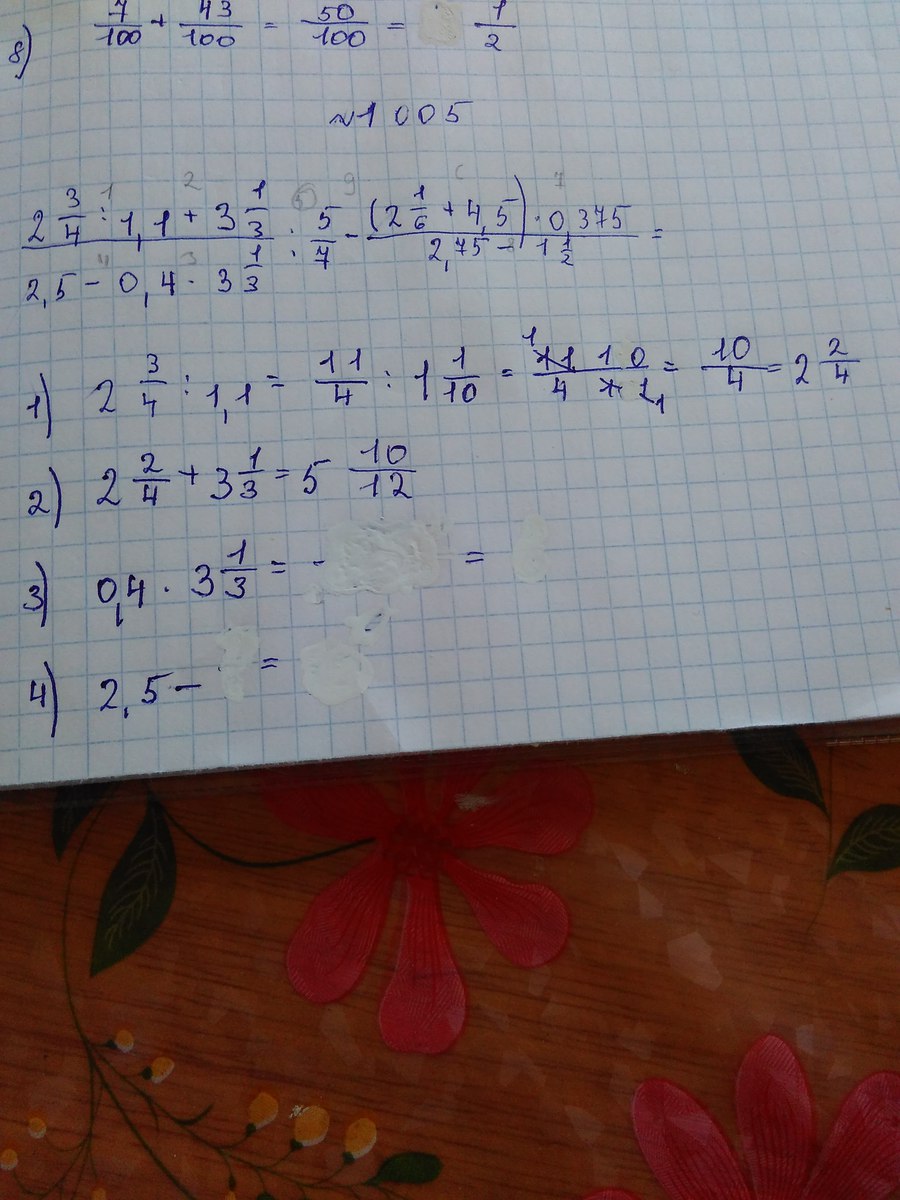 8) 7/100 + 43/100 = 50/100 = 1/2
№1005
(2 3/4 : 1,1 + 3 1/3)/(2,5 - 0,4 · 3 1/3) : 5/7 - ((2 1/6 + 4,5) · 0,375)/(2,75 - 1 1/2) =
1) 2 3/4 : 1,1 = 11/4 : 1 1/10 = 11 · 10/4 · 11 = 10/4 = 2 2/4
2) 2 2/4 + 3 1/3 = 5 10/12
3) 0,4 · 3 1/3 = - =
4) 2,5 - =